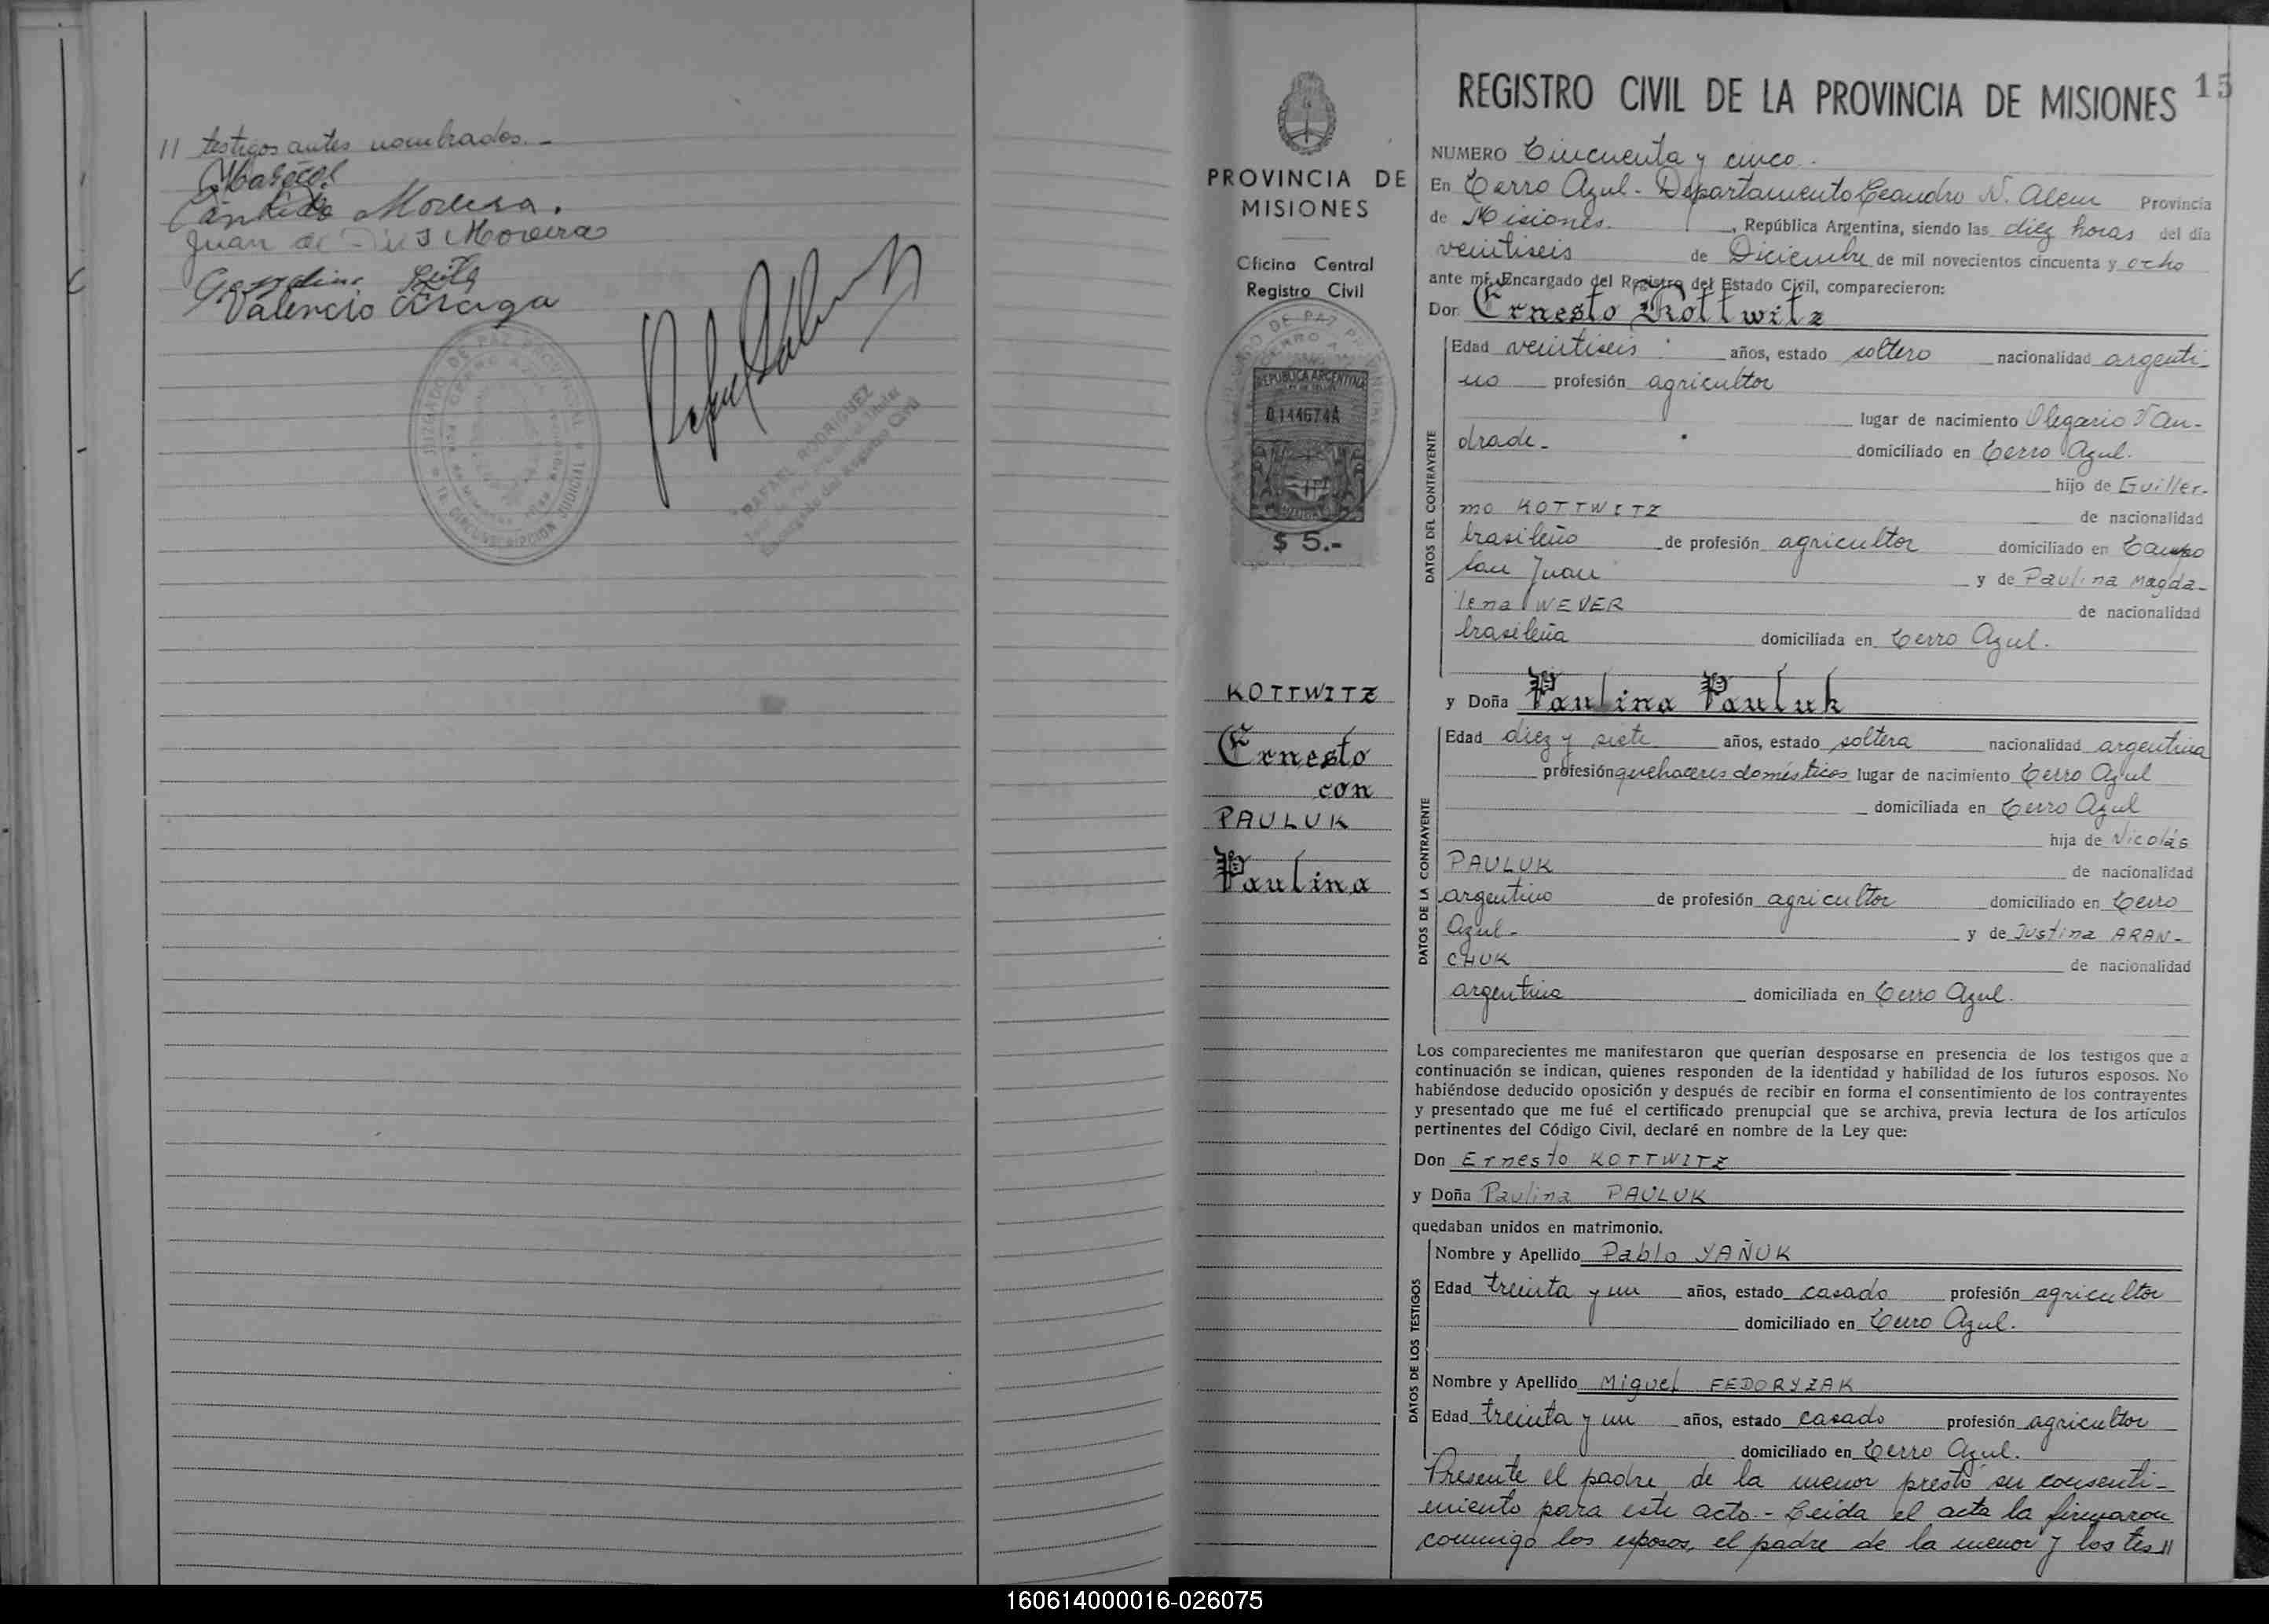 // testigos antes nombrados.-
Cándido Moreira.
Juan de Dios Moreira
Valencio Araga
JUZGADO DE PAZ PROVINCIAL
CIRCUNSCRIPCION JUDICIAL
RAFAEL RODRIGUEZ
Encargado del Registro Civil
PROVINCIA DE
MISIONES
Oficina Central
Registro Civil
REPUBLICA ARGENTINA
0144674A
$ 5.-
KOTTWITZ
Ernesto
con
PAULUK
Paulina
REGISTRO CIVIL DE LA PROVINCIA DE MISIONES 15
NUMERO Cincuenta y cinco.
En Cerro Azul - Departamento Leandro N. Alem Provincia
de Misiones. , República Argentina, siendo las diez horas del día
veintiseis de Diciembre de mil novecientos cincuenta y ocho
ante mí, Encargado del Registro del Estado Civil, comparecieron:
Don Ernesto Kottwitz
DATOS DEL CONTRAYENTE
Edad veintiseis años, estado soltero nacionalidad argenti-
no profesión agricultor
lugar de nacimiento Olegario V An-
drade- domiciliado en Cerro Azul.
hijo de Guiller-
mo KOTTWITZ de nacionalidad
brasileño de profesión agricultor domiciliado en Campo
San Juan y de Paulina Magda-
lena WEVER de nacionalidad
brasileña domiciliada en Cerro Azul.
y Doña Paulina Pauluk
DATOS DE LA CONTRAYENTE
Edad diez y siete años, estado soltera nacionalidad argentina
profesión quehaceres domésticos lugar de nacimiento Cerro Azul
domiciliada en Cerro Azul
hija de Nicolás
PAULUK de nacionalidad
argentino de profesión agricultor domiciliado en Cerro
Azul- y de Justina ARAN-
CHUK de nacionalidad
argentina domiciliada en Cerro Azul.
Los comparecientes me manifestaron que querían desposarse en presencia de los testigos que a
continuación se indican, quienes responden de la identidad y habilidad de los futuros esposos. No
habiéndose deducido oposición y después de recibir en forma el consentimiento de los contrayentes
y presentado que me fué el certificado prenupcial que se archiva, previa lectura de los artículos
pertinentes del Código Civil, declaré en nombre de la Ley que:
Don Ernesto KOTTWITZ
y Doña Paulina PAULUK
quedaban unidos en matrimonio.
DATOS DE LOS TESTIGOS
Nombre y Apellido Pablo YAÑUK
Edad treinta y un años, estado casado profesión agricultor
domiciliado en Cerro Azul.
Nombre y Apellido Miguel FEDORYZAK
Edad treinta y un años, estado casado profesión agricultor
domiciliado en Cerro Azul.
Presente el padre de la menor prestó su consenti-
miento para este acto.- Leida el acta la firmaron
conmigo los esposos, el padre de la menor y los tes//
160614000016-026075